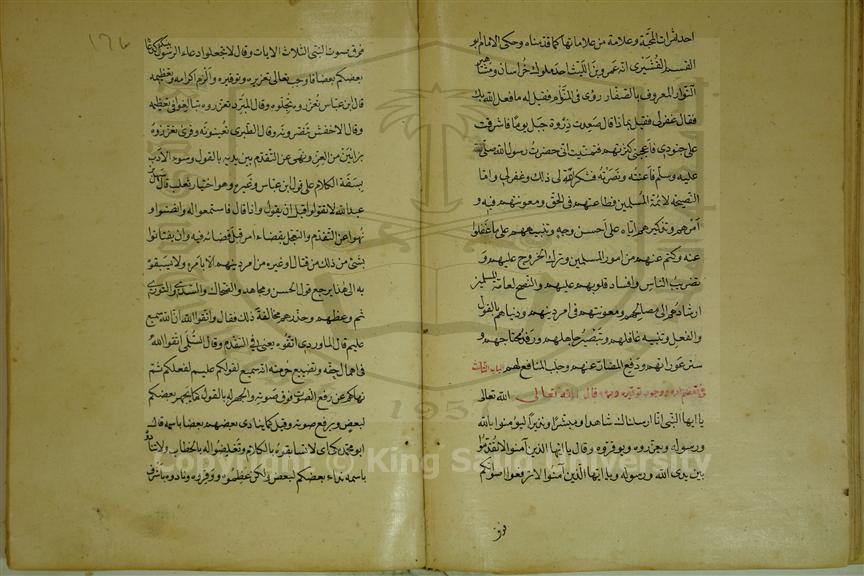 احد ثمرات المحبّة وعلامة من علاماتها كما قدمناه وحكى الامام ابو
القسم القشيرى ان عمرو بن الليث احد ملوك خراسان ومشاهير
الثوار المعروف بالصفار رؤى فى المنام فقيل له ما فعل الله بك
فقال غفر لى فقيل بماذا قال صعدت ذروة جبل يوما فاشرفت
على جنودى فاعجبنى كثرتهم فتمنيت انى حضرت رسول الله صلى الله
عليه وسلم فاعنته ونصرته فشكر الله لى ذلك وغفر لى واما
النصيحة لائمة المسلمين فطاعتهم فى الحق ومعونتهم فيه و
امرهم وتذكيرهم اياه على احسن وجه وتنبيههم على ما غفلوا
عنه وكتم عنهم من امور المسلمين وترك الخروج عليهم و
تضريب الناس وافساد قلوبهم عليهم والنصح لعامة المسلمين
ارشادهم الى مصالحهم ومعونتهم فى امر دينهم ودنياهم بالقول
والفعل وتنبيه غافلهم وتبصير جاهلهم ورفد محتاجهم و
ستر عوراتهم ودفع المضار عنهم وجلب المنافع اليهم الباب الثالث
فى تعظيم امره ووجوب توقيره وبره قال الله تعالى
يا ايها النبى انا ارسلناك شاهدا ومبشرا ونذيرا ليؤمنوا بالله
ورسوله ويعزروه ويوقروه وقال يا ايها الذين آمنوا لا تقدموا
بين يدى الله ورسوله ويا ايها الذين آمنوا لا ترفعوا اصواتكم
فوق
١٢٦
فوق صوت النبى الثلاث الايات وقال لا تجعلوا دعاء الرسول بينكم كدعاء
بعضكم بعضا فاوجب تعالى تعزيره وتوقيره والزم اكرامه وتعظيمه
قال ابن عباس يعزروه يجلوه وقال المبرد تعزروه تبالغوا فى تعظيمه
وقال الاخفش تنصرونه وقال الطبرى تعينونه وقرئ تعززوه
بزائين من العز ونهى عن التقدم بين يديه بالقول وسوء الادب
بسبقه الكلام على قول ابن عباس وغيره وهو اختيار ثعلب قال سهل بن
عبد الله لا تقولوا قبل ان يقول واذا قال فاستمعوا له وانصتوا و
نهوا عن التقدم والتعجل بقضاء امر قبل قضائه فيه وان يفتاتوا
بشئ من ذلك من قتال او غيره من امر دينهم الا بامره ولا يسبقوه
به الى هذا يرجع قول الحسن ومجاهد والضحاك والسدى والثورى
ثم وعظهم وحذرهم مخالفة ذلك فقال واتقوا الله ان الله سميع
عليم قال الماوردى اتقوه يعنى فى التقدم وقال السلمى اتقوا الله
فى اهمال حقه وتضييع حرمته انه سميع لقولكم عليم لفعلكم ثم
نهاكم عن رفع الصوت فوق صوته والجهر له بالقول كما يجهر بعضكم
لبعض ويرفع صوته وقيل كما ينادى بعضهم بعضا باسمه قال
ابو محمد مكى اى لا تسابقوه بالكلام وتغلظوا له بالخطاب ولا تنادوه
باسمه نداء بعضكم لبعض ولكن عظموه ووقروه ونادوه باشرف
1957
Copyright © King Saud University